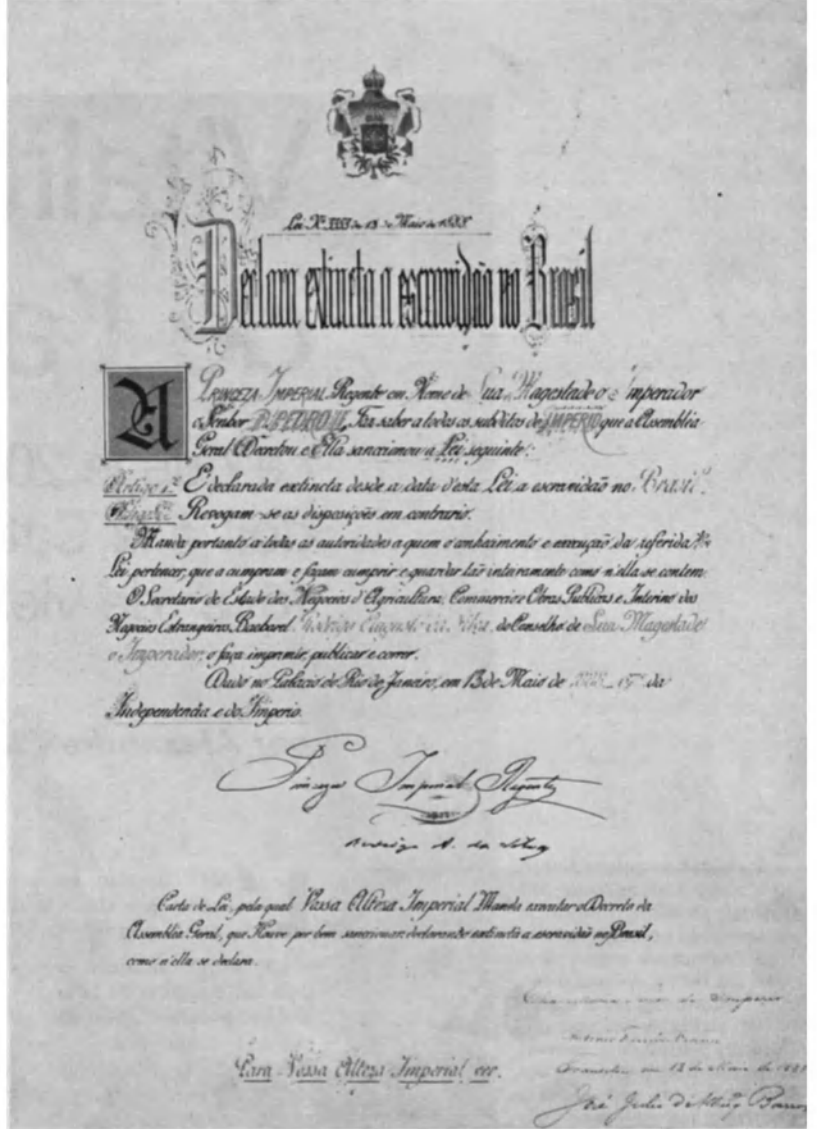 Lei Nº 3353 de 13 de Maio de 1888
Declara extincta a escravidão no Brasil
A PRINCEZA IMPERIAL Regente em Nome de Sua Magestade o Imperador
o Senhor D. PEDRO II, Faz saber a todos os subditos do IMPERIO que a Assembléa
Geral Decretou e Ella sanccionou a Lei seguinte:
Artigo 1º É declarada extincta desde a data d'esta Lei a escravidão no Brasil.
Revogam-se as disposições em contrario.
Manda portanto a todas as autoridades a quem o conhecimento e execução da referida
Lei pertencer, que a cumpram e façam cumprir e guardar tão inteiramente como n'ella se contem.
O Secretario de Estado dos Negocios d'Agricultura, Commercio e Obras Publicas e Interino dos
Negocios Estrangeiros, Bacharel Rodrigo Augusto da Silva, do Conselho de Sua Magestade
o Imperador, o faça imprimir, publicar e correr.
Dado no Palacio do Rio de Janeiro, em 13 de Maio de 1888 da
Independencia e do Imperio.
Princeza Imperial Regente
Rodrigo A. da Silva
Carta de Lei, pela qual Vossa Alteza Imperial Manda executar o Decreto da
Assembléa Geral, que Houve por bem sanccionar, declarando extincta a escravidão no Brasil,
como n'ella se declara.
Chancellaria-mór do Imperio
Antonio Ferreira Vianna
Para Vossa Alteza Imperial ver.
em 13 de Maio de 1888
José Julio de Barros